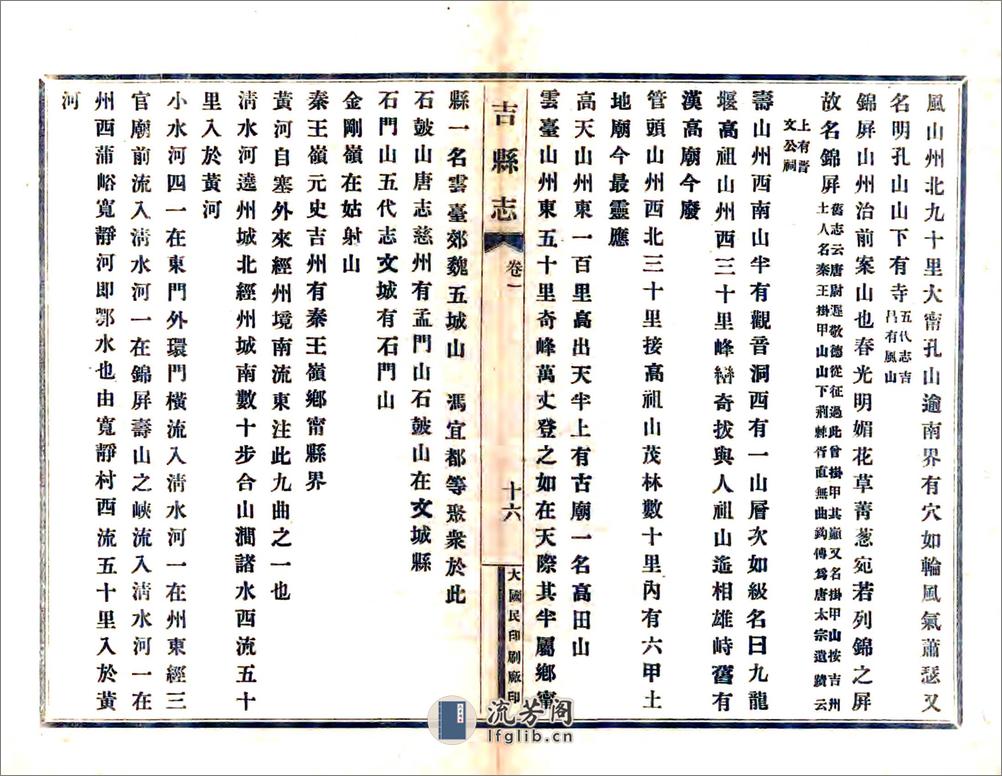 風山州北九十里大甯孔山逾南界有穴如輪風氣蕭瑟又
名明孔山山下有寺五代志吉
呂有風山
錦屏山州治前案山也春光明媚花草菁葱宛若列錦之屏
故名錦屏舊志云唐尉遲敬德從征過此曾掛甲其巔又名掛甲山按吉州
土人名秦王掛甲山山下荊棘皆直無曲鈎傳爲唐太宗遺蹟云
上有晋
文公祠
壽山州西南山半有觀音洞西有一山層次如級名曰九龍
堰高祖山州西三十里峰巒奇拔與人祖山遙相雄峙舊有
漢高廟今廢
管頭山州西北三十里接高祖山茂林數十里內有六甲土
地廟今最靈應
高天山州東一百里高出天半上有古廟一名高田山
雲臺山州東五十里奇峰萬丈登之如在天際其半屬鄉甯
吉縣志
卷一
十六
大國民印刷廠印
縣一名雲臺郊魏五城山 馮宜都等聚衆於此
石鼓山唐志慈州有孟門山石鼓山在文城縣
石門山五代志文城有石門山
金剛嶺在姑射山
秦王嶺元史吉州有秦王嶺鄉甯縣界
黃河自塞外來經州境南流東注此九曲之一也
淸水河遶州城北經州城南數十步合山澗諸水西流五十
里入於黃河
小水河四一在東門外環門橫流入淸水河一在州東經三
官廟前流入淸水河一在錦屏壽山之峽流入淸水河一在
州西蒲峪寬靜河即鄂水也由寬靜村西流五十里入於黃
河
流芳阁
lfglib.cn